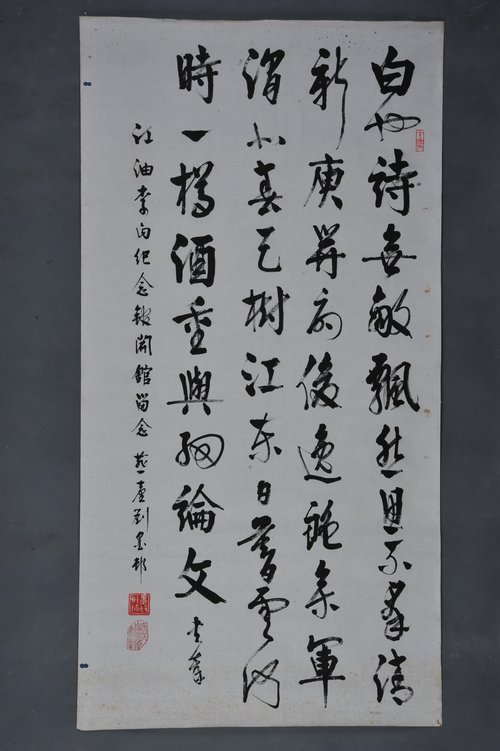 白也詩無敵飄然思不羣清
新庾開府俊逸鮑參軍
渭北春天樹江東日暮雲何
時一樽酒重與細論文 書奉
江油李白纪念館開館留念 劉墨邨